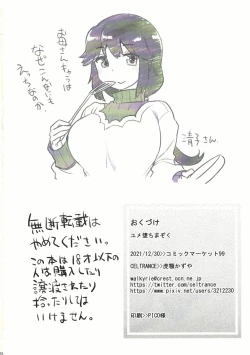 お母さんきゅうは
なぜこんなにも
えっちなのか。
清子さん
無断転載は
やめてください。
この本は18才以下の
人は購入したり
譲渡されたり
拾ったりしては
いけません。
おくづけ
ユメ堕ちまぞく
2021/12/30>>コミックマーケット99
CELTRANCE>>虎龍かずや
walkyrie@crest.ocn.ne.jp
https://twitter.com/celtrance
https://www.pixiv.net/users/3212230
印刷>>PICO様